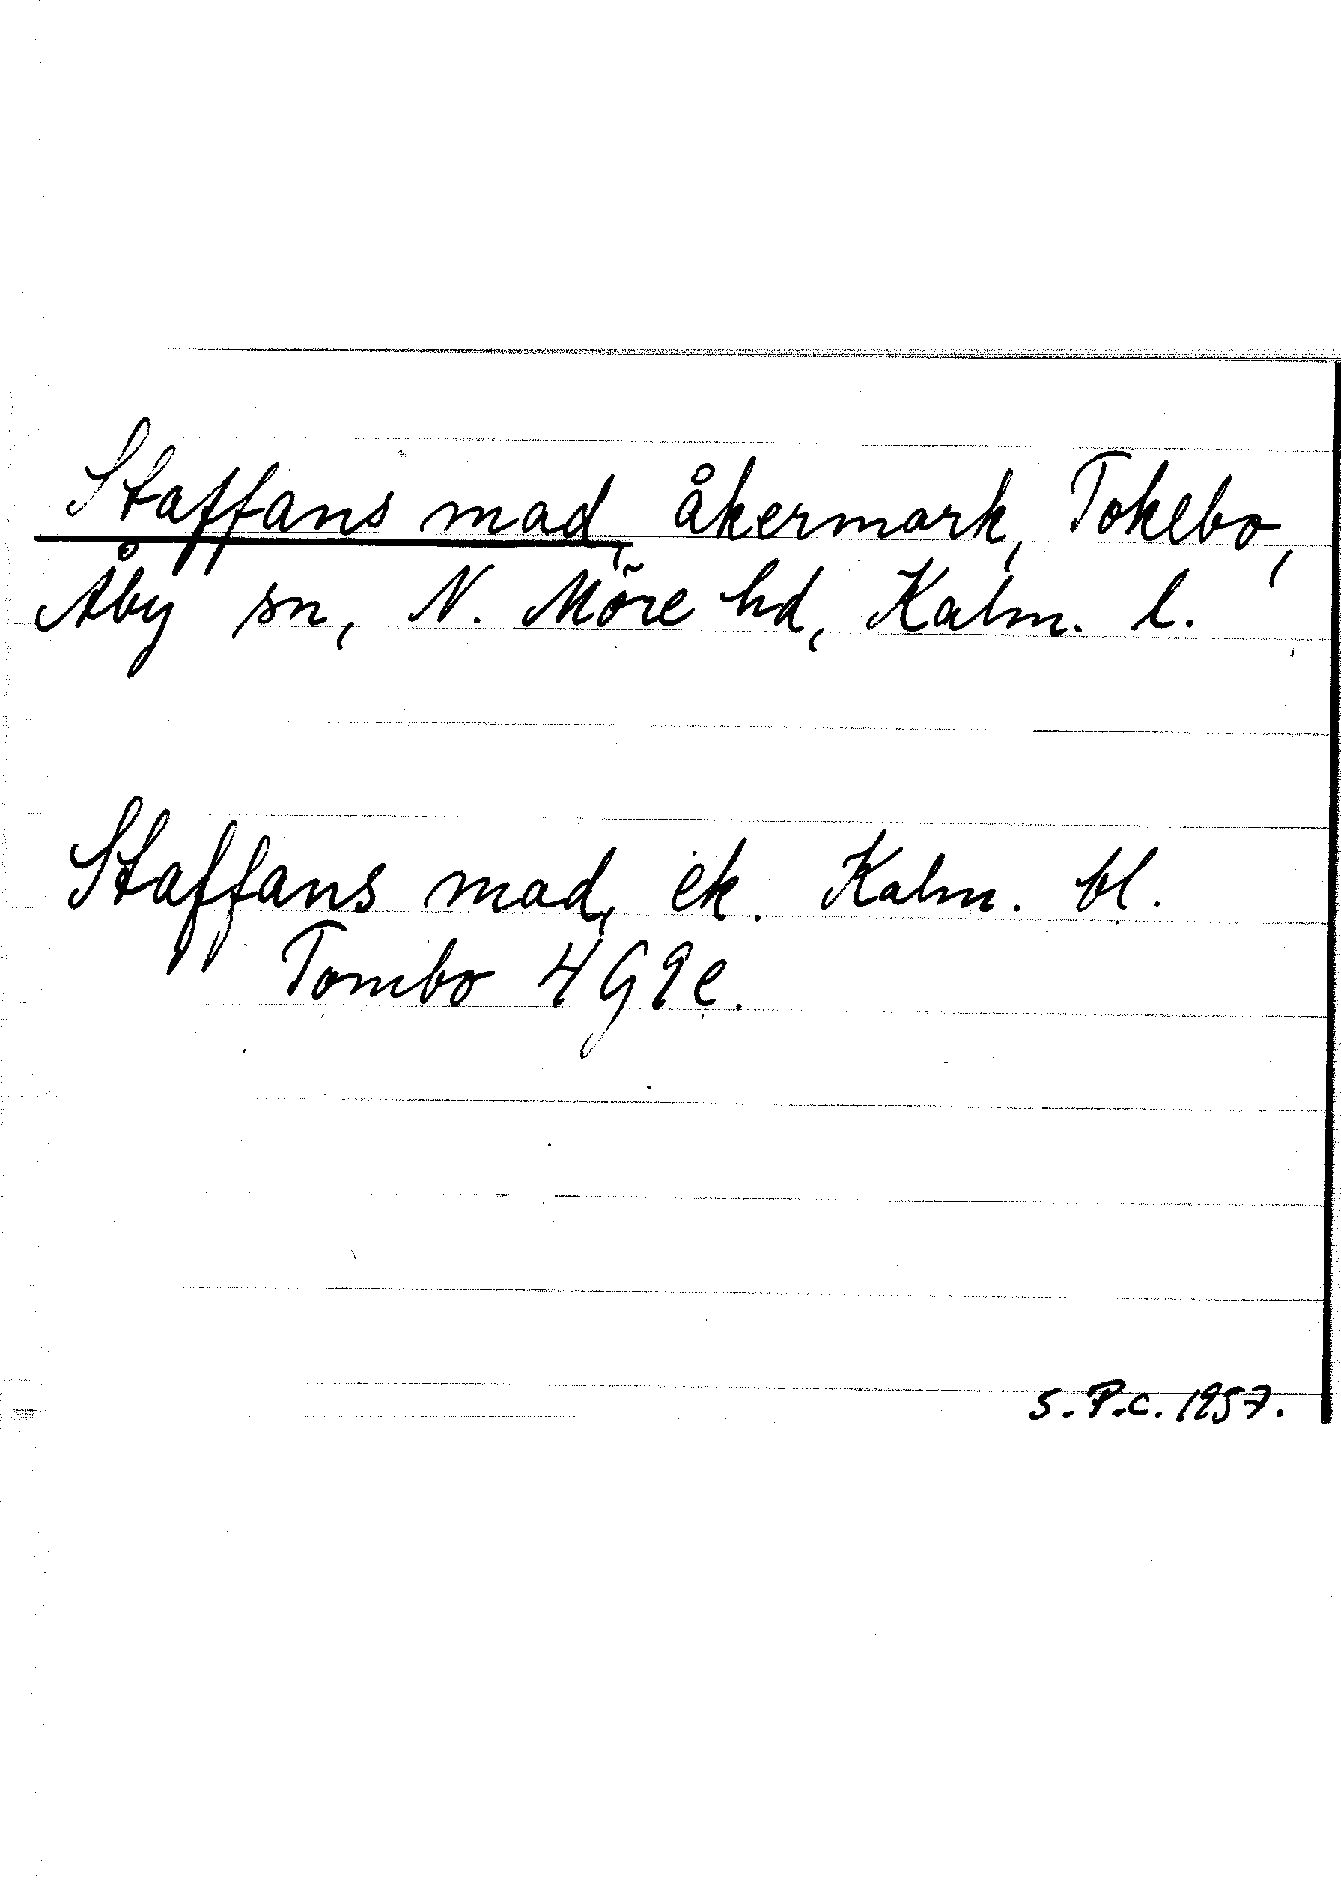 Staffans mad, åkermark, Tokebo,
Åby sn, N. Möre hd, Kalm. l.
Staffans mad, ek. Kalm. bl.
Tombo 4G9e.
S.P.C. 1957.